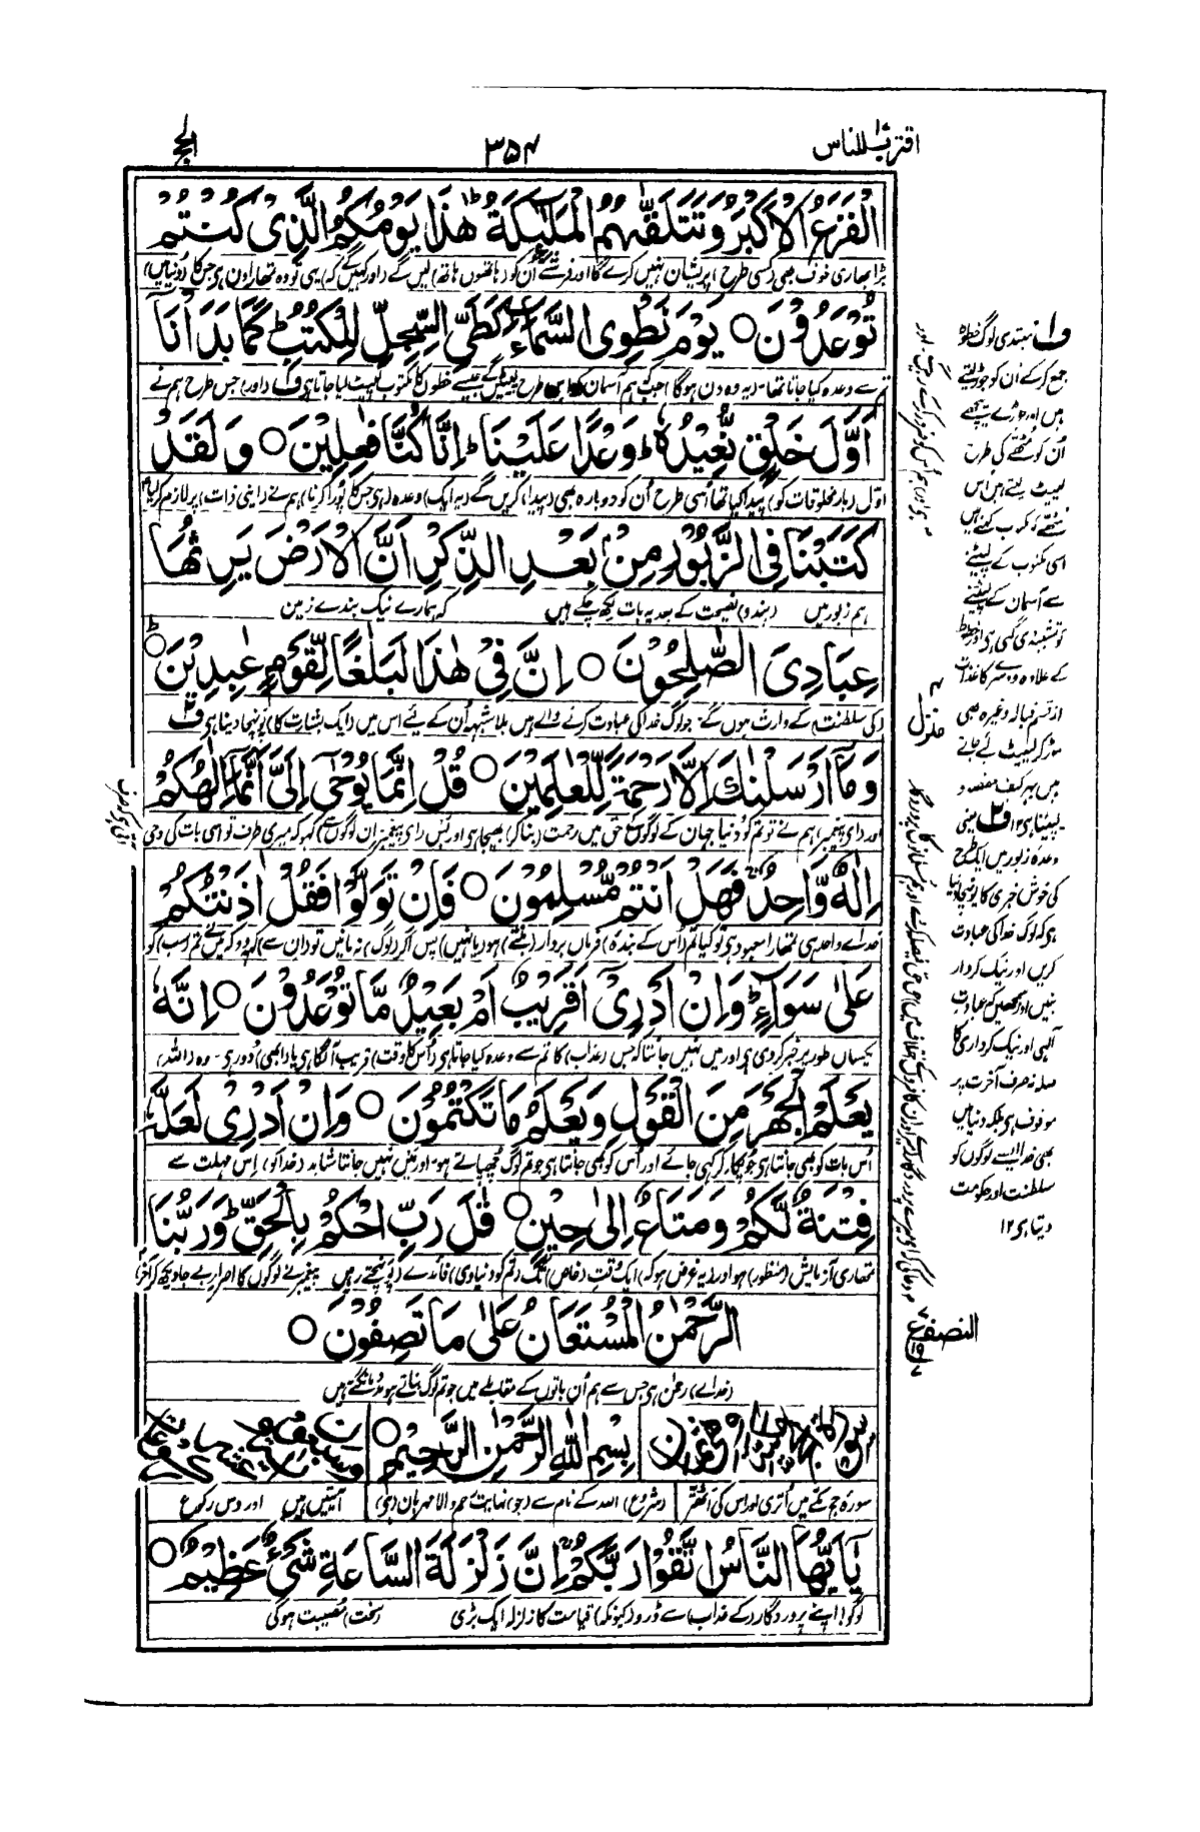 اقترب للناس ۱۷
۳۵۴
الحج
الْفَزَعُ الْاَكْبَرُ وَتَتَلَقّٰىهُمُ الْمَلٰٓئِكَةُ ؕ هٰذَا يَوْمُكُمُ الَّذِىْ كُنْتُمْ
بڑا بھاری خوف بھی (کسی طرح) پریشان نہیں کرے گا اور فرشتے اُن کو (ہاتھوں ہاتھ) لیں گے (اور کہیں گے کہ) یہی تو وہ تمھارا دن ہے جس کا (دُنیا میں)
تُوْعَدُوْنَ ○ يَوْمَ نَطْوِى السَّمَآءَ كَطَىِّ السِّجِلِّ لِلْكُتُبِ ؕ كَمَا بَدَاْنَآ
تم سے وعدہ کیا جاتا تھا۔ (یہ وہ دن ہوگا) جبکہ ہم آسمان کو اس طرح لپیٹیں گے جیسے خطوں کا مکتوب لپیٹ لیا جاتا ہے ف۱ (اور) جس طرح ہم نے
اَوَّلَ خَلْقٍ نُّعِيْدُهٗ ؕ وَعْدًا عَلَيْنَا ؕ اِنَّا كُنَّا فٰعِلِيْنَ ○ وَلَقَدْ
اوّل (بار مخلوقات کو) پیدا کیا تھا اُسی طرح اُن کو دوبارہ بھی (پیدا) کریں گے (یہ ایک) وعدہ (ہے جس کا پُورا کرنا) ہم نے (اپنی ذات) پر لازم کرلیا
كَتَبْنَا فِى الزَّبُوْرِ مِنْۢ بَعْدِ الذِّكْرِ اَنَّ الْاَرْضَ يَرِثُهَا
ہم زبور میں (پند و) نصیحت کے بعد یہ بات لکھ چکے ہیں کہ ہمارے نیک بندے زمین
عِبَادِىَ الصّٰلِحُوْنَ ○ اِنَّ فِىْ هٰذَا لَبَلٰغًا لِّقَوْمٍ عٰبِدِيْنَ ○ ؕ
(کی سلطنت) کے وارث ہوں گے۔ جو لوگ خدا کی عبادت کرنے والے ہیں بلاشبہ اُن کے لیے اس میں (ایک بشارت کا) پُہنچا دینا ہے ف۲
وَمَآ اَرْسَلْنٰكَ اِلَّا رَحْمَةً لِّلْعٰلَمِيْنَ ○ قُلْ اِنَّمَا يُوْحٰٓى اِلَىَّ اَنَّمَآ اِلٰهُكُمْ
اور (اے پیغمبر) ہم نے تو تم کو دُنیا جہان کے لوگوں کے حق میں رحمت (بنا کر) بھیجا ہے اور بس (اے پیغمبر ان لوگوں سے) کہو کہ میری طرف تو اسی بات کی وحی
اِلٰهٌ وَّاحِدٌ ۚ فَهَلْ اَنْتُمْ مُّسْلِمُوْنَ ○ فَاِنْ تَوَلَّوْا فَقُلْ اٰذَنْتُكُمْ
خدائے واحد ہی تمھارا معبود ہے تو کیا تم (اُس کے بندہ) فرماں بردار (بنتے) ہو (یا نہیں) پس اگر (لوگ) نہ مانیں تو (ان سے) کہہ دو کہ میں نے تم (سب) کو
عَلٰى سَوَآءٍ ؕ وَاِنْ اَدْرِىْٓ اَقَرِيْبٌ اَمْ بَعِيْدٌ مَّا تُوْعَدُوْنَ ○ اِنَّهٗ
یکساں طور پر خبر کردی ہے اور میں نہیں جانتا کہ جس (عذاب) کا تم سے وعدہ کیا جاتا ہے (اُس کا وقت) قریب آلگا ہے یا (ابھی) دُور ہے۔ وہ (اللہ)
يَعْلَمُ الْجَهْرَ مِنَ الْقَوْلِ وَيَعْلَمُ مَا تَكْتُمُوْنَ ○ وَاِنْ اَدْرِىْ لَعَلَّهٗ
اُس بات کو بھی جانتا ہے جو پکار کر کہی جائے اور اُس کو بھی جانتا ہے جو تم لوگ چُھپاتے ہو۔ اور میں نہیں جانتا شاید (خدا کو) اِس مہلت سے
فِتْنَةٌ لَّكُمْ وَمَتَاعٌ اِلٰى حِيْنٍ ○ قٰلَ رَبِّ احْكُمْ بِالْحَقِّ ؕ وَرَبُّنَا
تمھاری آزمایش (منظور) ہو اور (یہ غرض ہو کہ) ایک وقتِ (خاص) تک (تم کو دنیاوی) فائدے (پُہنچتے رہیں)
الرَّحْمٰنُ الْمُسْتَعَانُ عَلٰى مَا تَصِفُوْنَ ○
(خدائے) رحمٰن ہے جس سے ہم اُن باتوں کے مقابلے میں جو تم لوگ بناتے ہو مدد مانگتے ہیں
بِسْمِ اللّٰهِ الرَّحْمٰنِ الرَّحِيْمِ ○
سورۂ حج مکے میں اُتری اور اس کی اٹھتّر (شروع) اللہ کے نام سے (جو) نہایت رحم والا مہربان (ہے) آیتیں ہیں اور دس رکوع
يٰٓاَيُّهَا النَّاسُ اتَّقُوْا رَبَّكُمْ ۚ اِنَّ زَلْزَلَةَ السَّاعَةِ شَىْءٌ عَظِيْمٌ ○
لوگو! اپنے پروردگار (کے عذاب) سے ڈرو (کیونکہ) قیامت کا زلزلہ ایک بڑی (سخت) مُصیبت ہوگی
ف۱ مبتدی لوگ خطوط
جمع کرکے اُن کو جوڑ لیتے
ہیں اور
اُن کو مُٹھے کی طرح
لپیٹ لیتے ہیں اس
مُٹھے کو مکتوب کہتے ہیں
اسی مکتوب کے لپیٹنے
سے آسمان کے لپیٹنے
کو تشبیہ دی گئی ہے اور خطوط
کے علاوہ دوسرے کاغذات
از قسم قبالہ وغیرہ بھی
موڑ کر لپیٹ لئے جاتے
ہیں بہرکیف مقصود
لپیٹنا ہے ۱۲ ف۲ یعنی
وعدۂ زبور میں ایک طرح
کی خوش خبری کا پُہنچا دینا
ہے کہ لوگ خدا کی عبادت
کریں اور نیک کردار
بنیں اور سمجھیں کہ عبادتِ
الٰہی اور نیک کرداری کا
صلہ نہ صرف آخرت پر
موقوف ہے بلکہ دنیا میں
بھی خدا ایسے لوگوں کو
سلطنت اور حکومت
دیتا ہے ۱۲
منزل ۴
النصف
ع